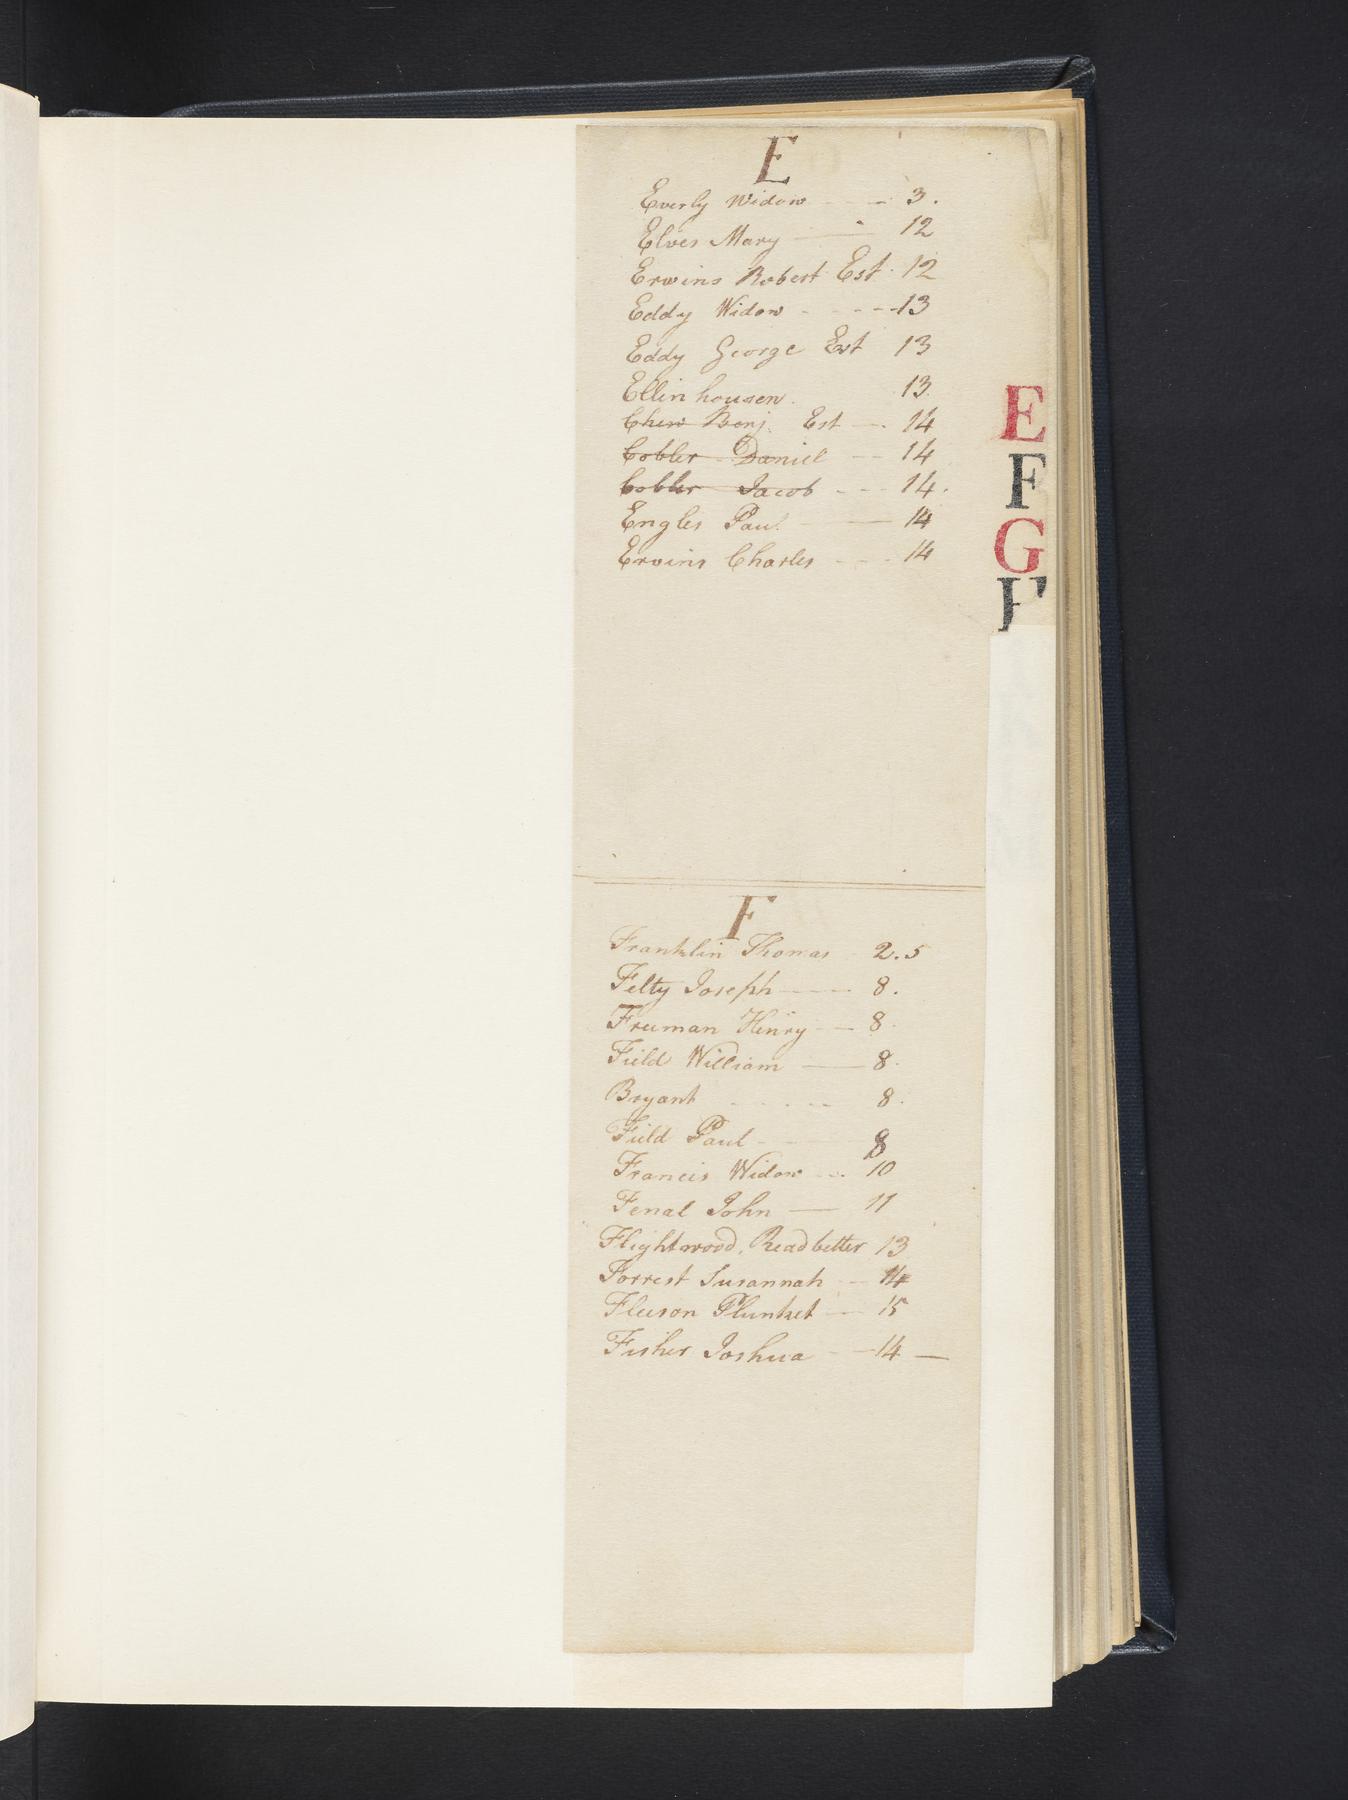 E
Everly Widow - - - 3.
Elves Mary — - 12
Erwins Robert Est. 12
Eddy Widow - - - - 13
Eddy George Est 13
Ellinhousen. 13
Chew Benj. Est — . 14
Cobler Daniel — 14
Cobler Jacob - - - 14.
Engles Paul — 14
Ervins Charles - - - 14
F
Franklin Thomas 2.5
Felty Joseph — 8.
Freeman Henry — 8.
Field William — 8.
Bryant - - - - 8.
Field Paul - - 8
Francis Widow - - 10
Fenal John — 11
Flightwood, Readbetter 13
Forrest Susannah — 14
Fleeson Plunket — 15
Fisher Joshua - — 14 —
E
F
G